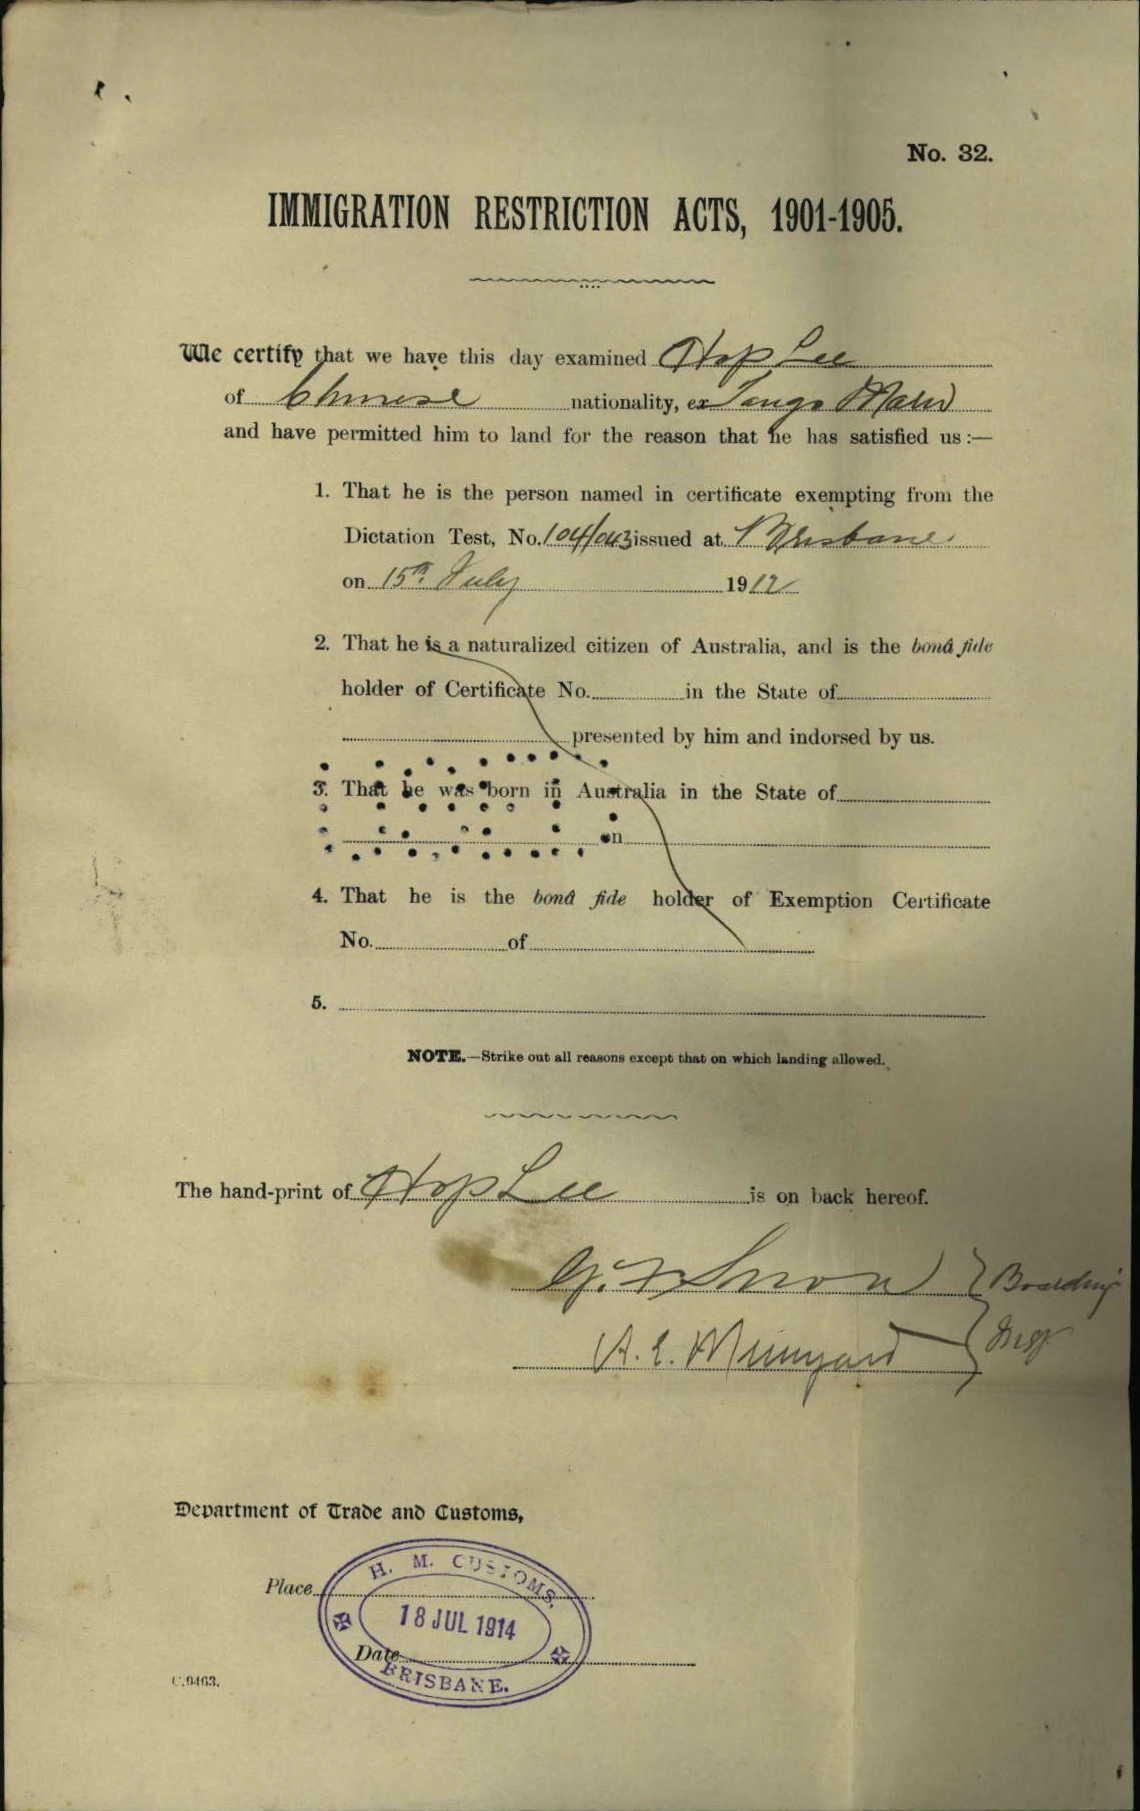 No. 32.
IMMIGRATION RESTRICTION ACTS, 1901-1905.
We certify that we have this day examined Hop Lee
of Chinese nationality, ex Tango Maru
and have permitted him to land for the reason that he has satisfied us :—
1. That he is the person named in certificate exempting from the
Dictation Test, No. 104/043 issued at Brisbane
on 15th July 1912
2. That he is a naturalized citizen of Australia, and is the bonâ fide
holder of Certificate No. in the State of
presented by him and indorsed by us.
3. That he was born in Australia in the State of
on
4. That he is the bonâ fide holder of Exemption Certificate
No. of
5.
NOTE.—Strike out all reasons except that on which landing allowed.
The hand-print of Hop Lee is on back hereof.
Snow } Boarding
A. E. Munyard } Insp
Department of Trade and Customs,
Place
H. M. CUSTOMS.
18 JUL 1914
Date
BRISBANE.
C.9463.